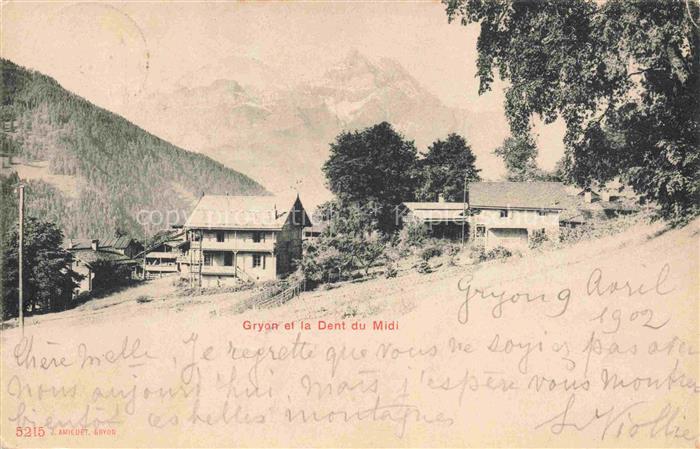 Gryon et la Dent du Midi
Gryon 9 Avril
1902
Chère Melle, Je regrette que vous ne soyiez pas avec
nous aujourd'hui, mais j'espère vous montrer
bientôt ces belles montagnes
5215 J. AMIGUET, GRYON